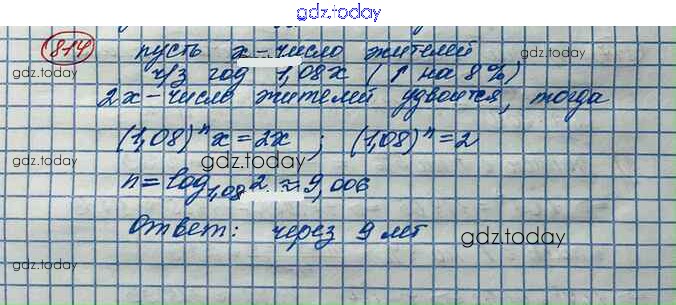 gdz.today
814 пусть x - число жителей
gdz.today
ч/з год 1,08x (↑ на 8%) gdz.today
2x - число жителей удвоится, тогда
(1,08)ⁿx = 2x ; (1,08)ⁿ = 2
gdz.today
n = log₁,₀₈2 ≈ 9,006
Ответ: через 9 лет gdz.today
gdz.today
gdz.today